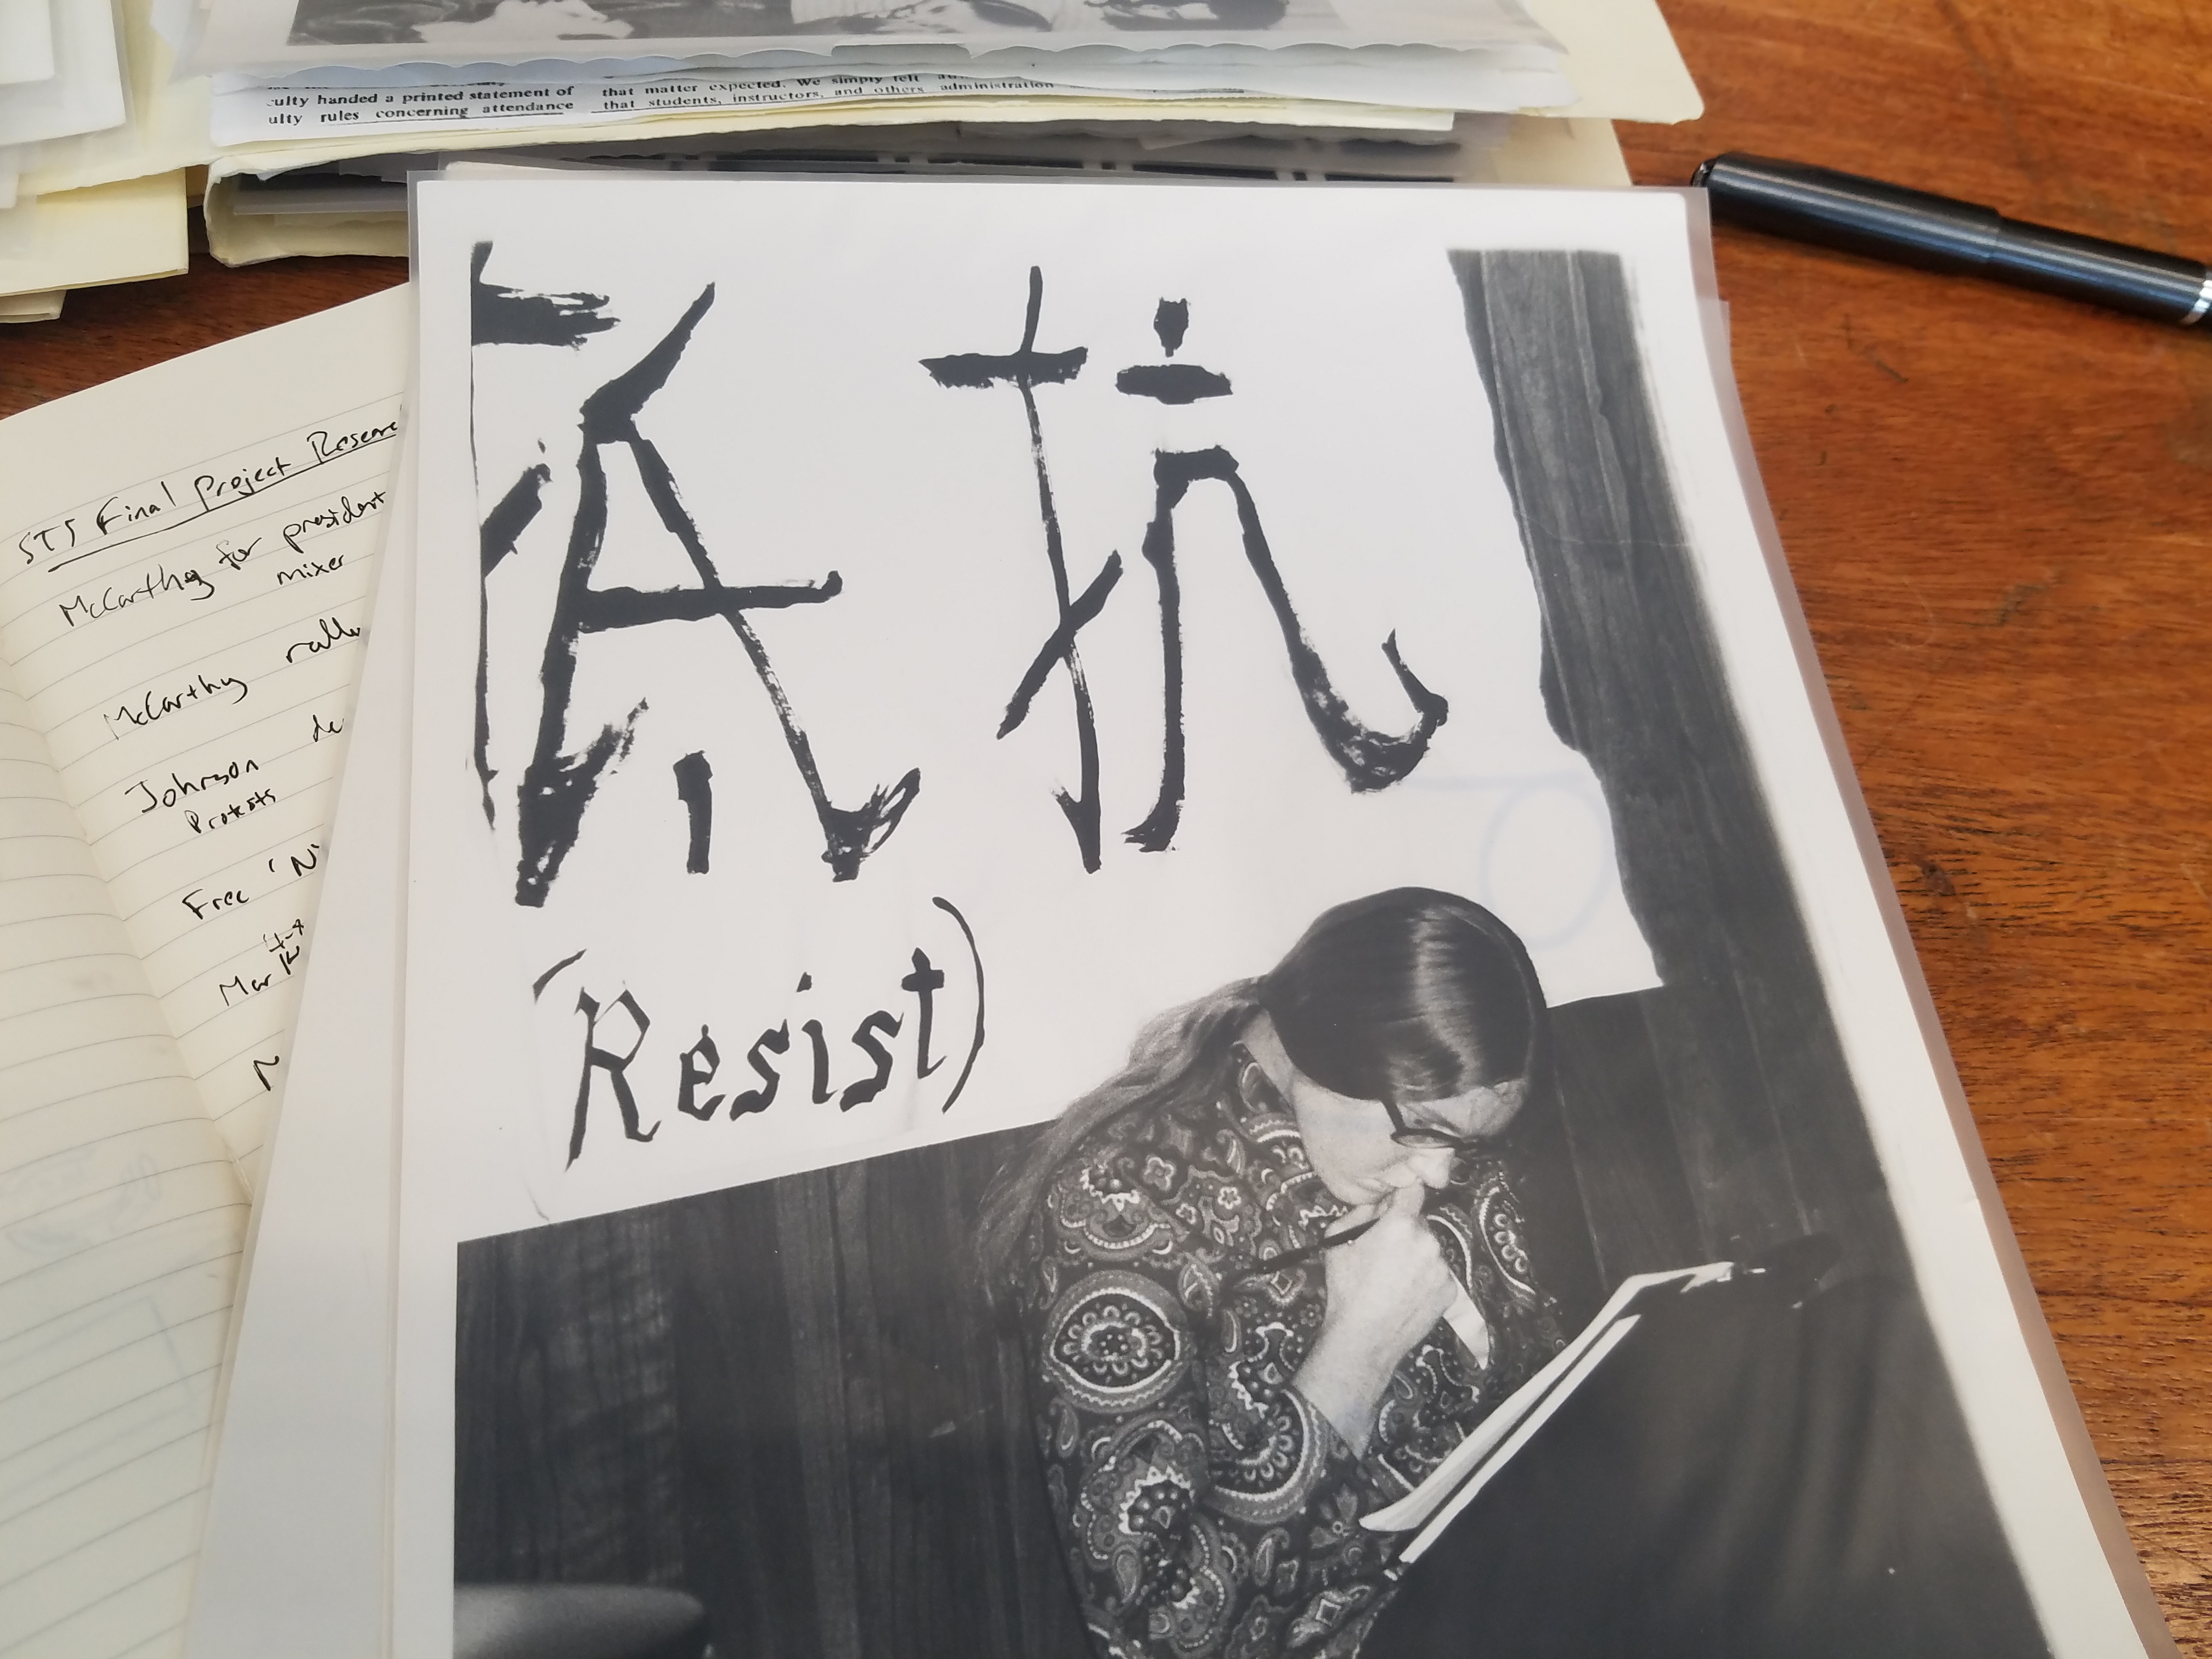 culty handed a printed statement of
ulty rules concerning attendance
that matter expected. We simply felt
that students, instructors, and others
administration
抵抗
(Resist)
STS Final Project Resear
McCarthy for president
mixer
McCarthy rally
Johnson de
Protests
Free 'N'
Mar